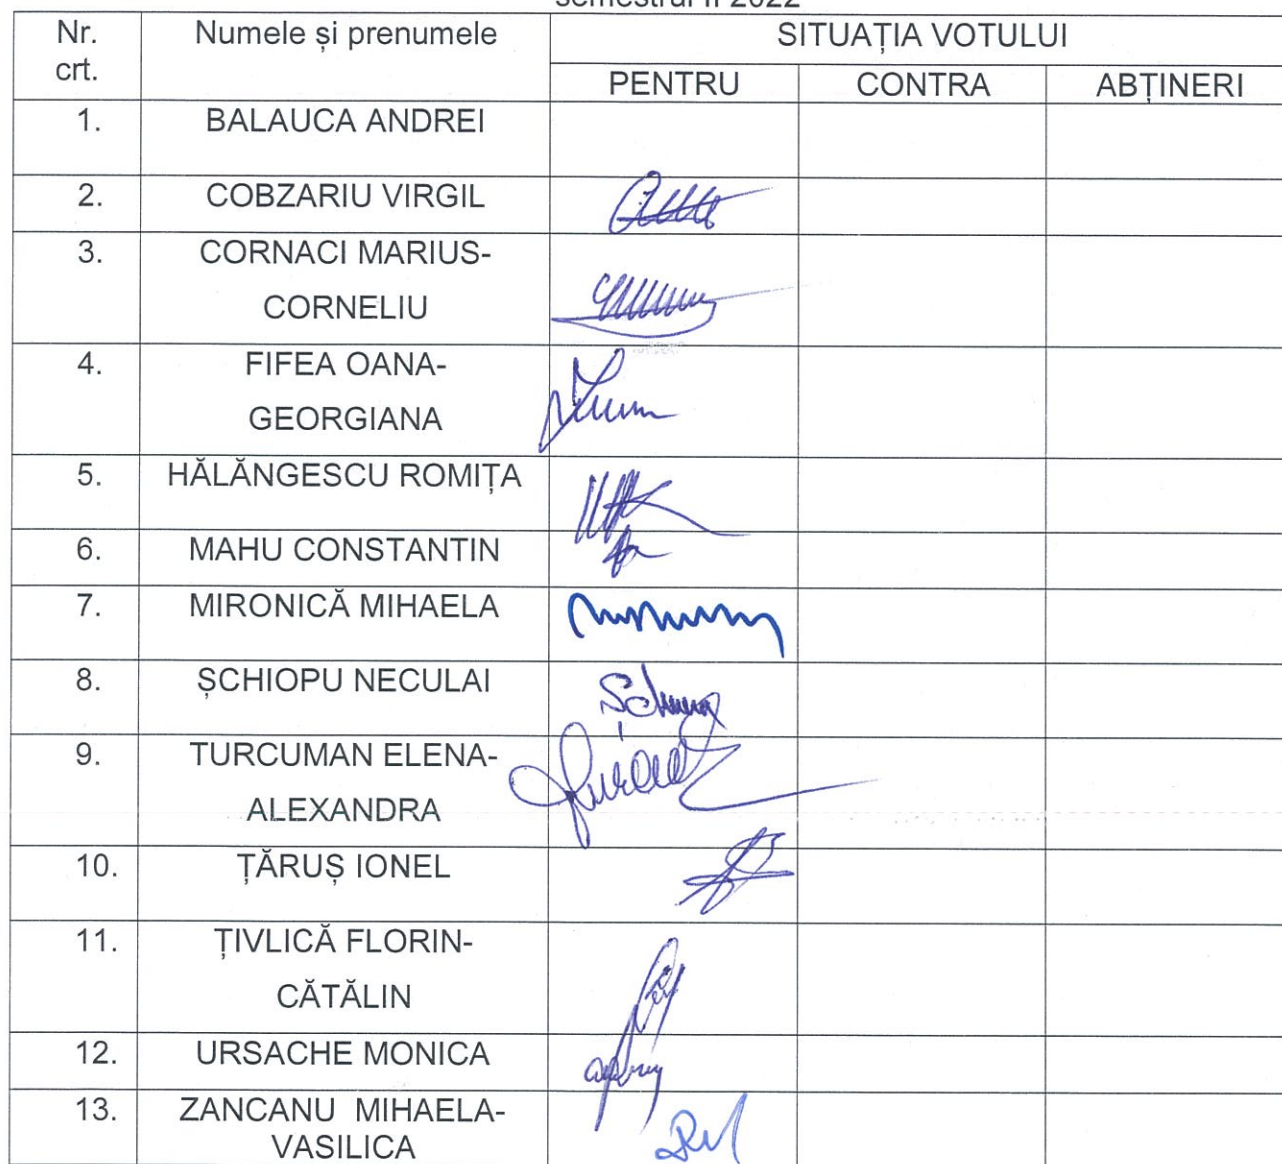 semestrul II 2022
Nr.
crt.
Numele și prenumele
SITUAȚIA VOTULUI
PENTRU
CONTRA
ABȚINERI
1.
BALAUCA ANDREI
2.
COBZARIU VIRGIL
3.
CORNACI MARIUS-
CORNELIU
4.
FIFEA OANA-
GEORGIANA
5.
HĂLĂNGESCU ROMIȚA
6.
MAHU CONSTANTIN
7.
MIRONICĂ MIHAELA
8.
ȘCHIOPU NECULAI
9.
TURCUMAN ELENA-
ALEXANDRA
10.
ȚĂRUȘ IONEL
11.
ȚIVLICĂ FLORIN-
CĂTĂLIN
12.
URSACHE MONICA
13.
ZANCANU MIHAELA-
VASILICA